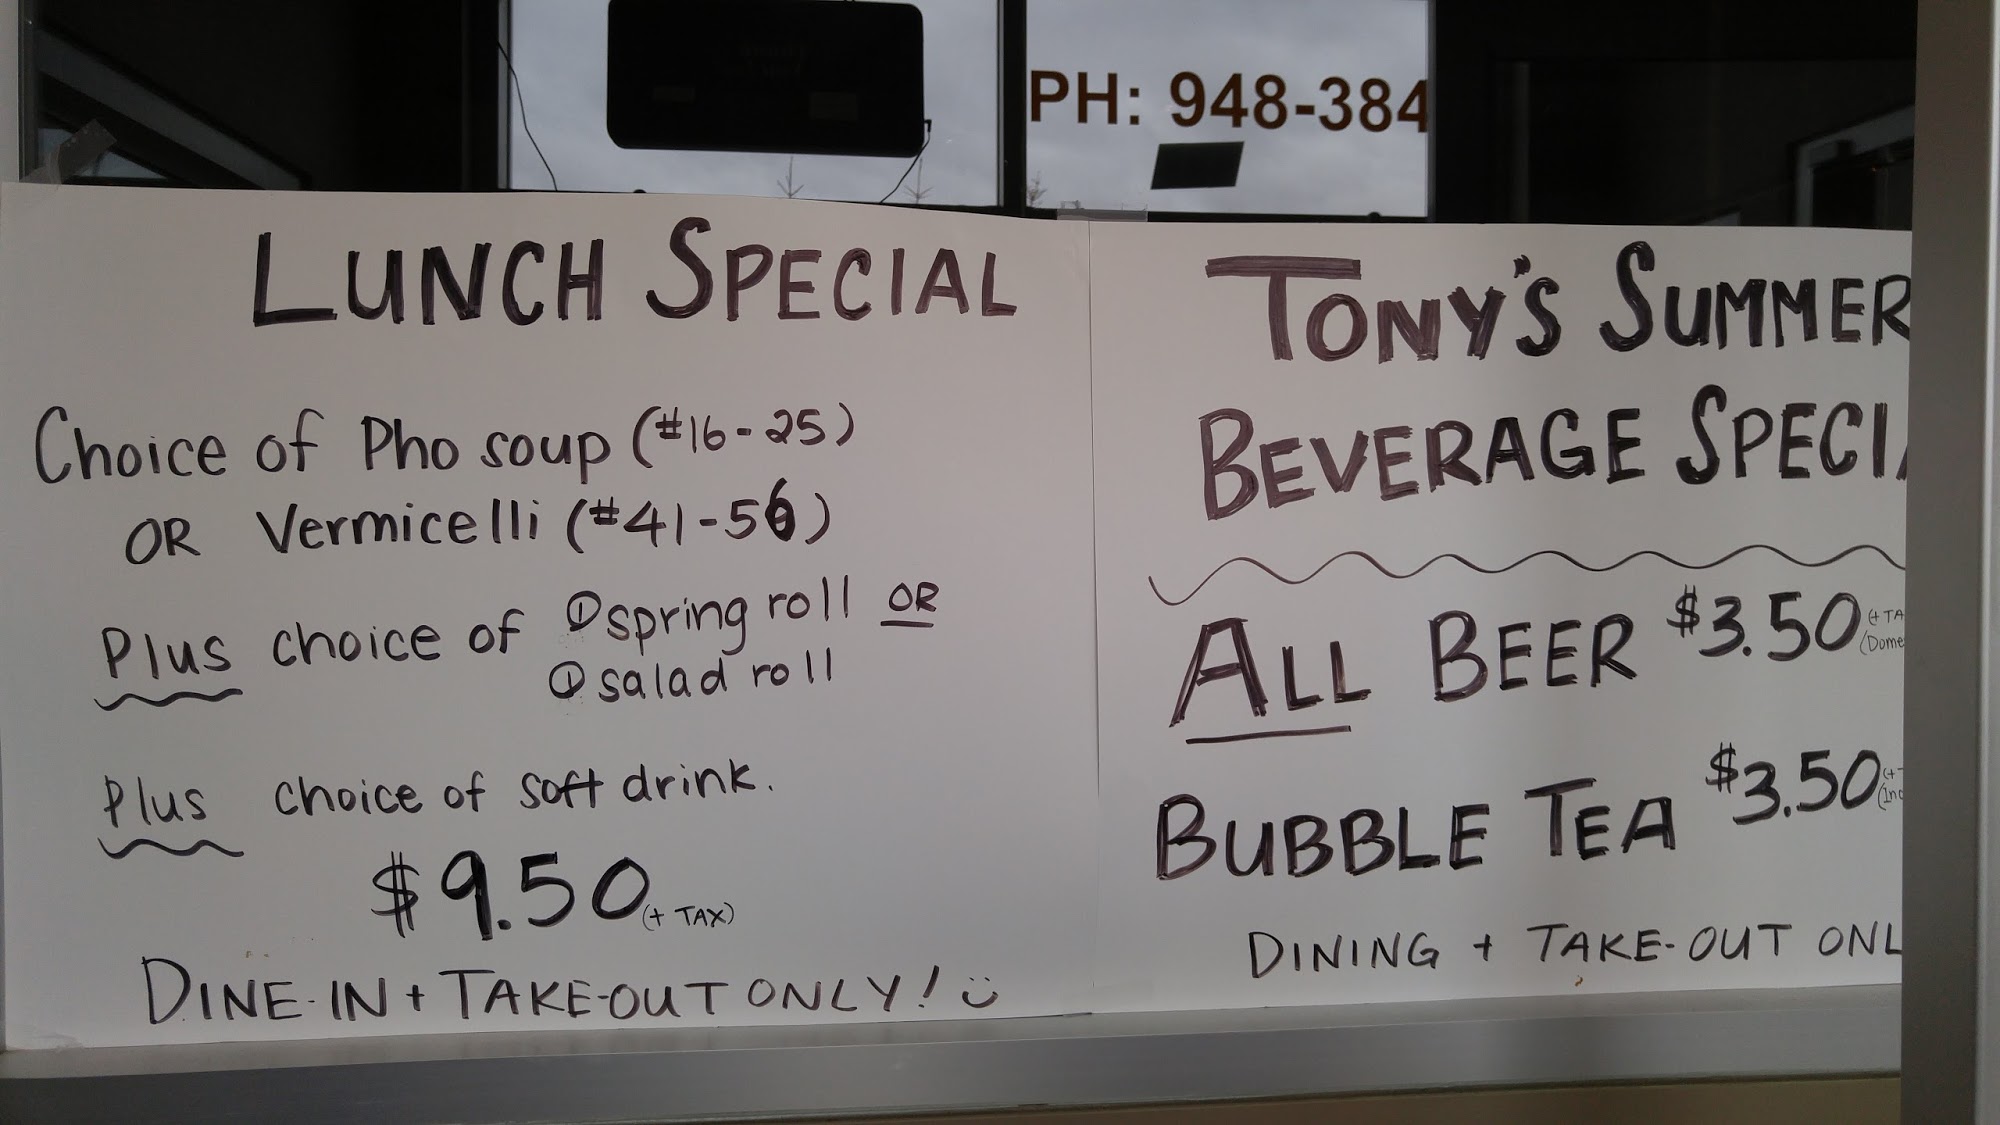 PH: 948-384
LUNCH SPECIAL
Choice of Pho soup (#16-25)
OR Vermicelli (#41-56)
Plus choice of ① spring roll OR
① salad roll
Plus choice of soft drink.
$9.50 (+ TAX)
DINE-IN + TAKE-OUT ONLY! ☺
TONY'S SUMMER
BEVERAGE SPECIA
ALL BEER $3.50 (+ TA
(Dome
BUBBLE TEA $3.50 (+ T
(Inc
DINING + TAKE-OUT ONL